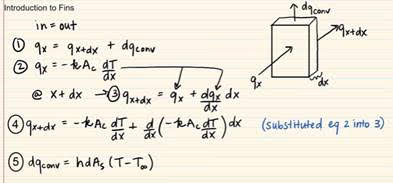 Introduction to Fins
in = out
① qx = qx+dx + dqconv
② qx = -kAc dT/dx
@ x + dx → ③ qx+dx = qx + dqx/dx dx
④ qx+dx = -kAc dT/dx + d/dx (-kAc dT/dx) dx (substituted eq 2 into 3)
⑤ dqconv = hdAs (T-T∞)
dqconv
qx+dx
qx
dx